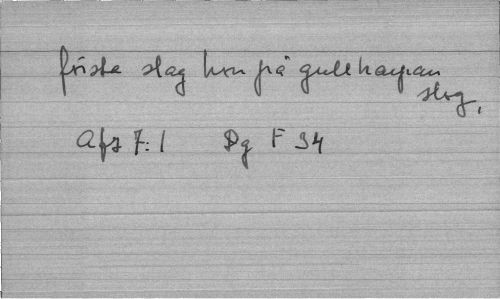 första slag hon på gullharpan
slog,
Afz 7:1 Dg F 34